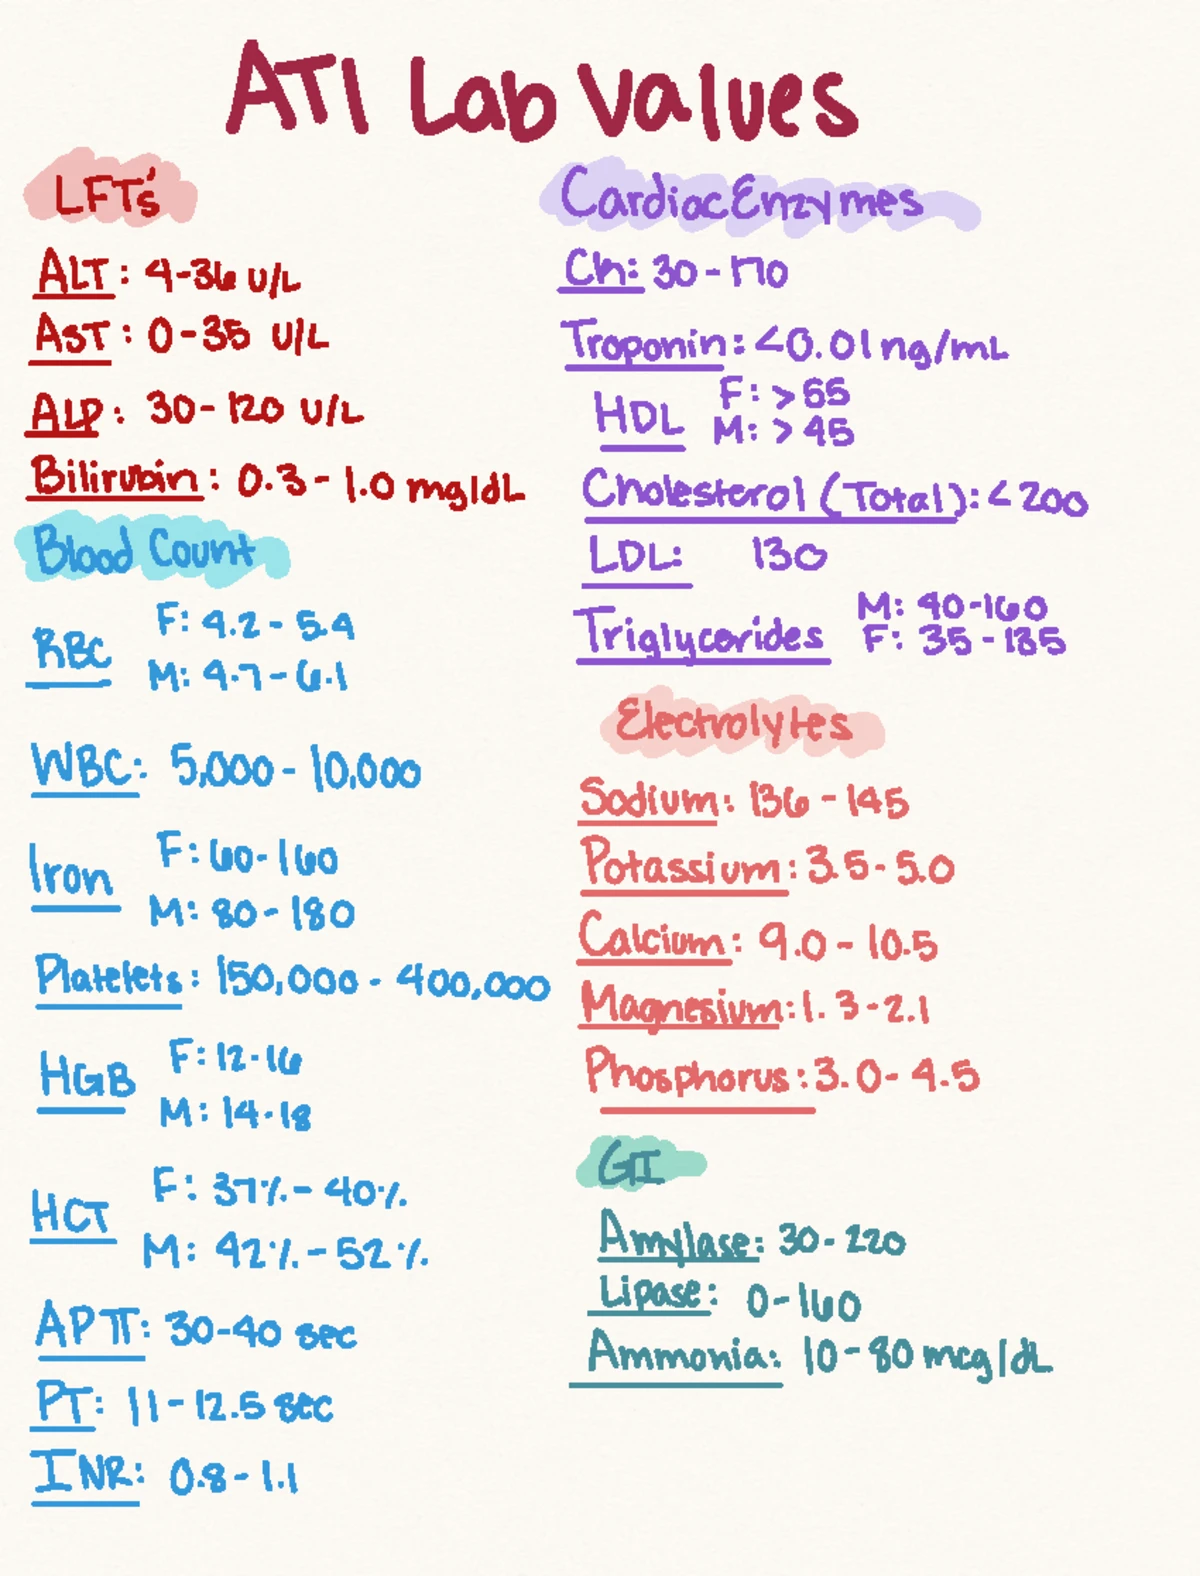 ATI Lab Values
LFT's
ALT: 4-36 U/L
AST: 0-35 U/L
ALP: 30-120 U/L
Bilirubin: 0.3-1.0 mg/dL
Blood Count
RBC F: 4.2-5.4
M: 4.7-6.1
WBC: 5,000-10,000
Iron F: 60-160
M: 80-180
Platelets: 150,000-400,000
HGB F: 12-16
M: 14-18
HCT F: 37%-40%
M: 42%-52%
APTT: 30-40 sec
PT: 11-12.5 sec
INR: 0.8-1.1
Cardiac Enzymes
CK: 30-170
Troponin: <0.01 ng/mL
HDL F: >55
M: >45
Cholesterol (Total): <200
LDL: 130
Triglycerides M: 40-160
F: 35-135
Electrolytes
Sodium: 136-145
Potassium: 3.5-5.0
Calcium: 9.0-10.5
Magnesium: 1.3-2.1
Phosphorus: 3.0-4.5
GI
Amylase: 30-220
Lipase: 0-160
Ammonia: 10-80 mcg/dL